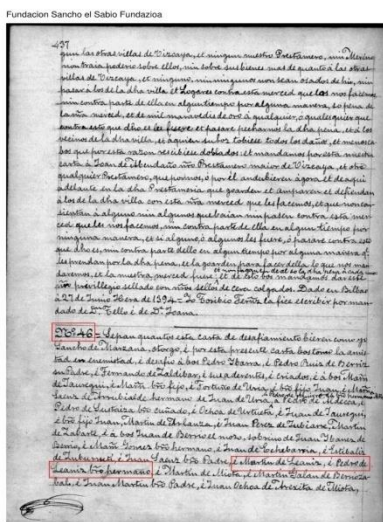 Fundacion Sancho el Sabio Fundazioa
437
gun las otras villas de Vizcaya, et ningun nuestro Prestamero, nin Merino
non traia poderio sobre ellos, nin sobre sus bienes mas de quanto á las otras
villas de Vizcaya, et ninguno, nin ningunos non sean osados de hir, nin
pasar á los de la dha villa et Logares contra esta merced que les nos facemos
nin contra parte de ella en algun tiempo por alguna manera, so pena de
la nra. merced, et de mil maravedis de oro á qualquier, ó qualesquier que
contra esto que dho es les fuere et pasare pecharnos la dha pena, et á los
vecinos de la dha villa, et á quien su boz tobiese todos los daños, et menosca
bos que por esta razon recibiese doblados: et mandamos por esta nuestra
carta á Joan de Abendaño nro Prestamero maior de Vizcaya, et otro
qualquier Prestamero, que por nos, ó por él andubieren agora et de aqui
adelante en la dha Prestameria que goarden et amparen et defiendan
á los de la dha villa con esta nra merced que les facemos, et que non con
sientan á alguno nin algunos que baian nin pasen contra esta mer
ced que les nos facemos, nin contra parte de ella en algun tiempo por
ninguna manera, et si alguno, ó algunos les fuere, ó pasare contra esto
que dho es, nin contra parte dello en algun tiempo por alguna manera q.
les prendan por la dha pena, et la goarden para facer della lo que nos man
daremos, et la nuestra merced fuere, et de esto bos mandamos dar este
nro previllegio sellado con nuestro sello de cera colgados. Dado en Bilbao
á 27 de Junio Hera de 1394 = Yo Toribio la fice escribir por man
dado de D. Tello é de D. Joana.
Nº. 46 = Sepan quantos esta carta de desafiamiento bieren como yo
Sancho de Marzana, otorgo, é por esta presente carta bos torno la amis
tad en enemistad, é decupo á bos Pedro Ibarra, é Pedro Ruiz de Berriz
su Padre, é Fernando de Zaldibar, é su adherentes, é criados, é á bos Martin
de Jauregui, é Martin bro fijo, é Fortuno de Uria, é bro fijo Juan, é Martin
Saenz de Arrubialde hermano de Juan de Uria, á Pedro de
Pedro de bro cuñado, é Ochoa de Urtieta, é Juan de Jauregui,
é bro fijo Juan, Martin de Arbanza, é Juan Perez de Zubicaro, é Martin
de Zabarte, é á bos Juan de Berrio el mozo, sobrino de Juan Ibanes de
Berrio, é Martin Gomez bro hermano, é Juan de Echebarria, é Estibaliz
de é Juan Saenz bro Padre, é Martin de Leaniz, é Pedro de
Leaniz bro hermano, é Martin de Miota, é Martin Galan de Bernoza
bal, é Juan Martin bro Padre, é Juan Ochoa de de Miota,